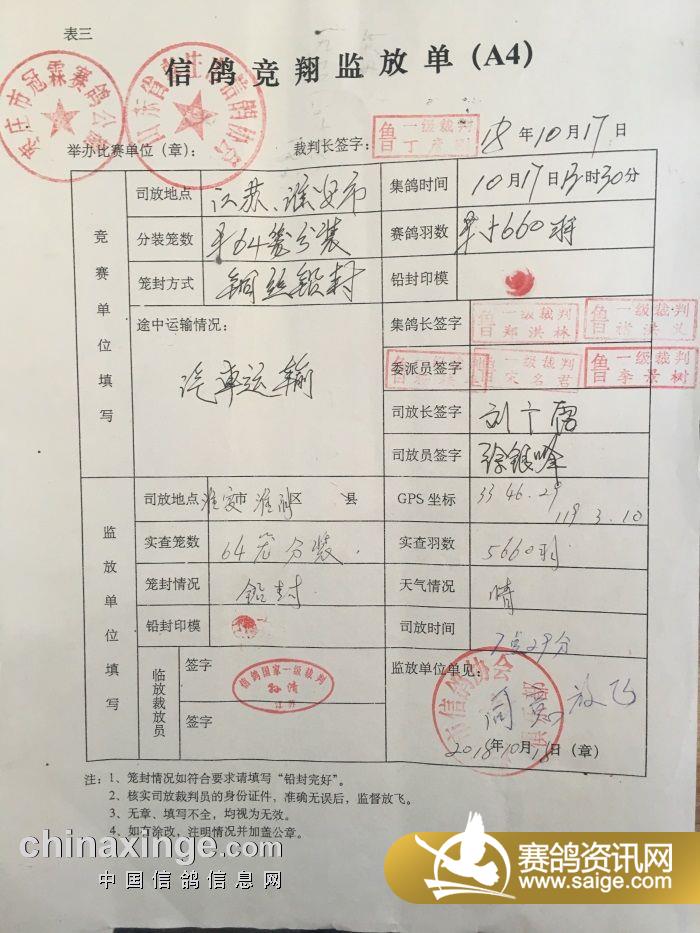 表三
信鸽竞翔监放单(A4)
枣庄市冠霖赛鸽公棚
信鸽协会
举办比赛单位(章):
裁判长签字:
鲁 一级裁判
18年10月17日
竞赛单位填写
司放地点 江苏、淮安市 集鸽时间 10月17日13时30分
分装笼数 64笼分装 赛鸽羽数 660羽
笼封方式 铜丝铅封 铅封印模
途中运输情况: 汽车运输
集鸽长签字 一级裁判 郑洪林 一级裁判
委派员签字 一级裁判 宋名君 一级裁判 李景树
司放长签字
司放员签字 徐银
监放单位填写
司放地点 淮安市 淮阴区 县 GPS坐标 33 46.29
119 3.10
实查笼数 64笼分装. 实查羽数 5660羽
笼封情况 铅封 天气情况 晴
铅封印模 司放时间 7点29分
临放裁放员
签字
信鸽国家一级裁判
孙倩
江苏
签字
监放单位单见:
市信鸽协会
同意放飞
2018年10月18日(章)
注: 1、笼封情况如符合要求请填写“铅封完好”。
2、核实司放裁判员的身份证件,准确无误后,监督放飞。
3、无章、填写不全,均视为无效。
4、如有涂改,注明情况并加盖公章。
chinaxinge.com
中国信鸽信息网
赛鸽资讯网
www.saige.com